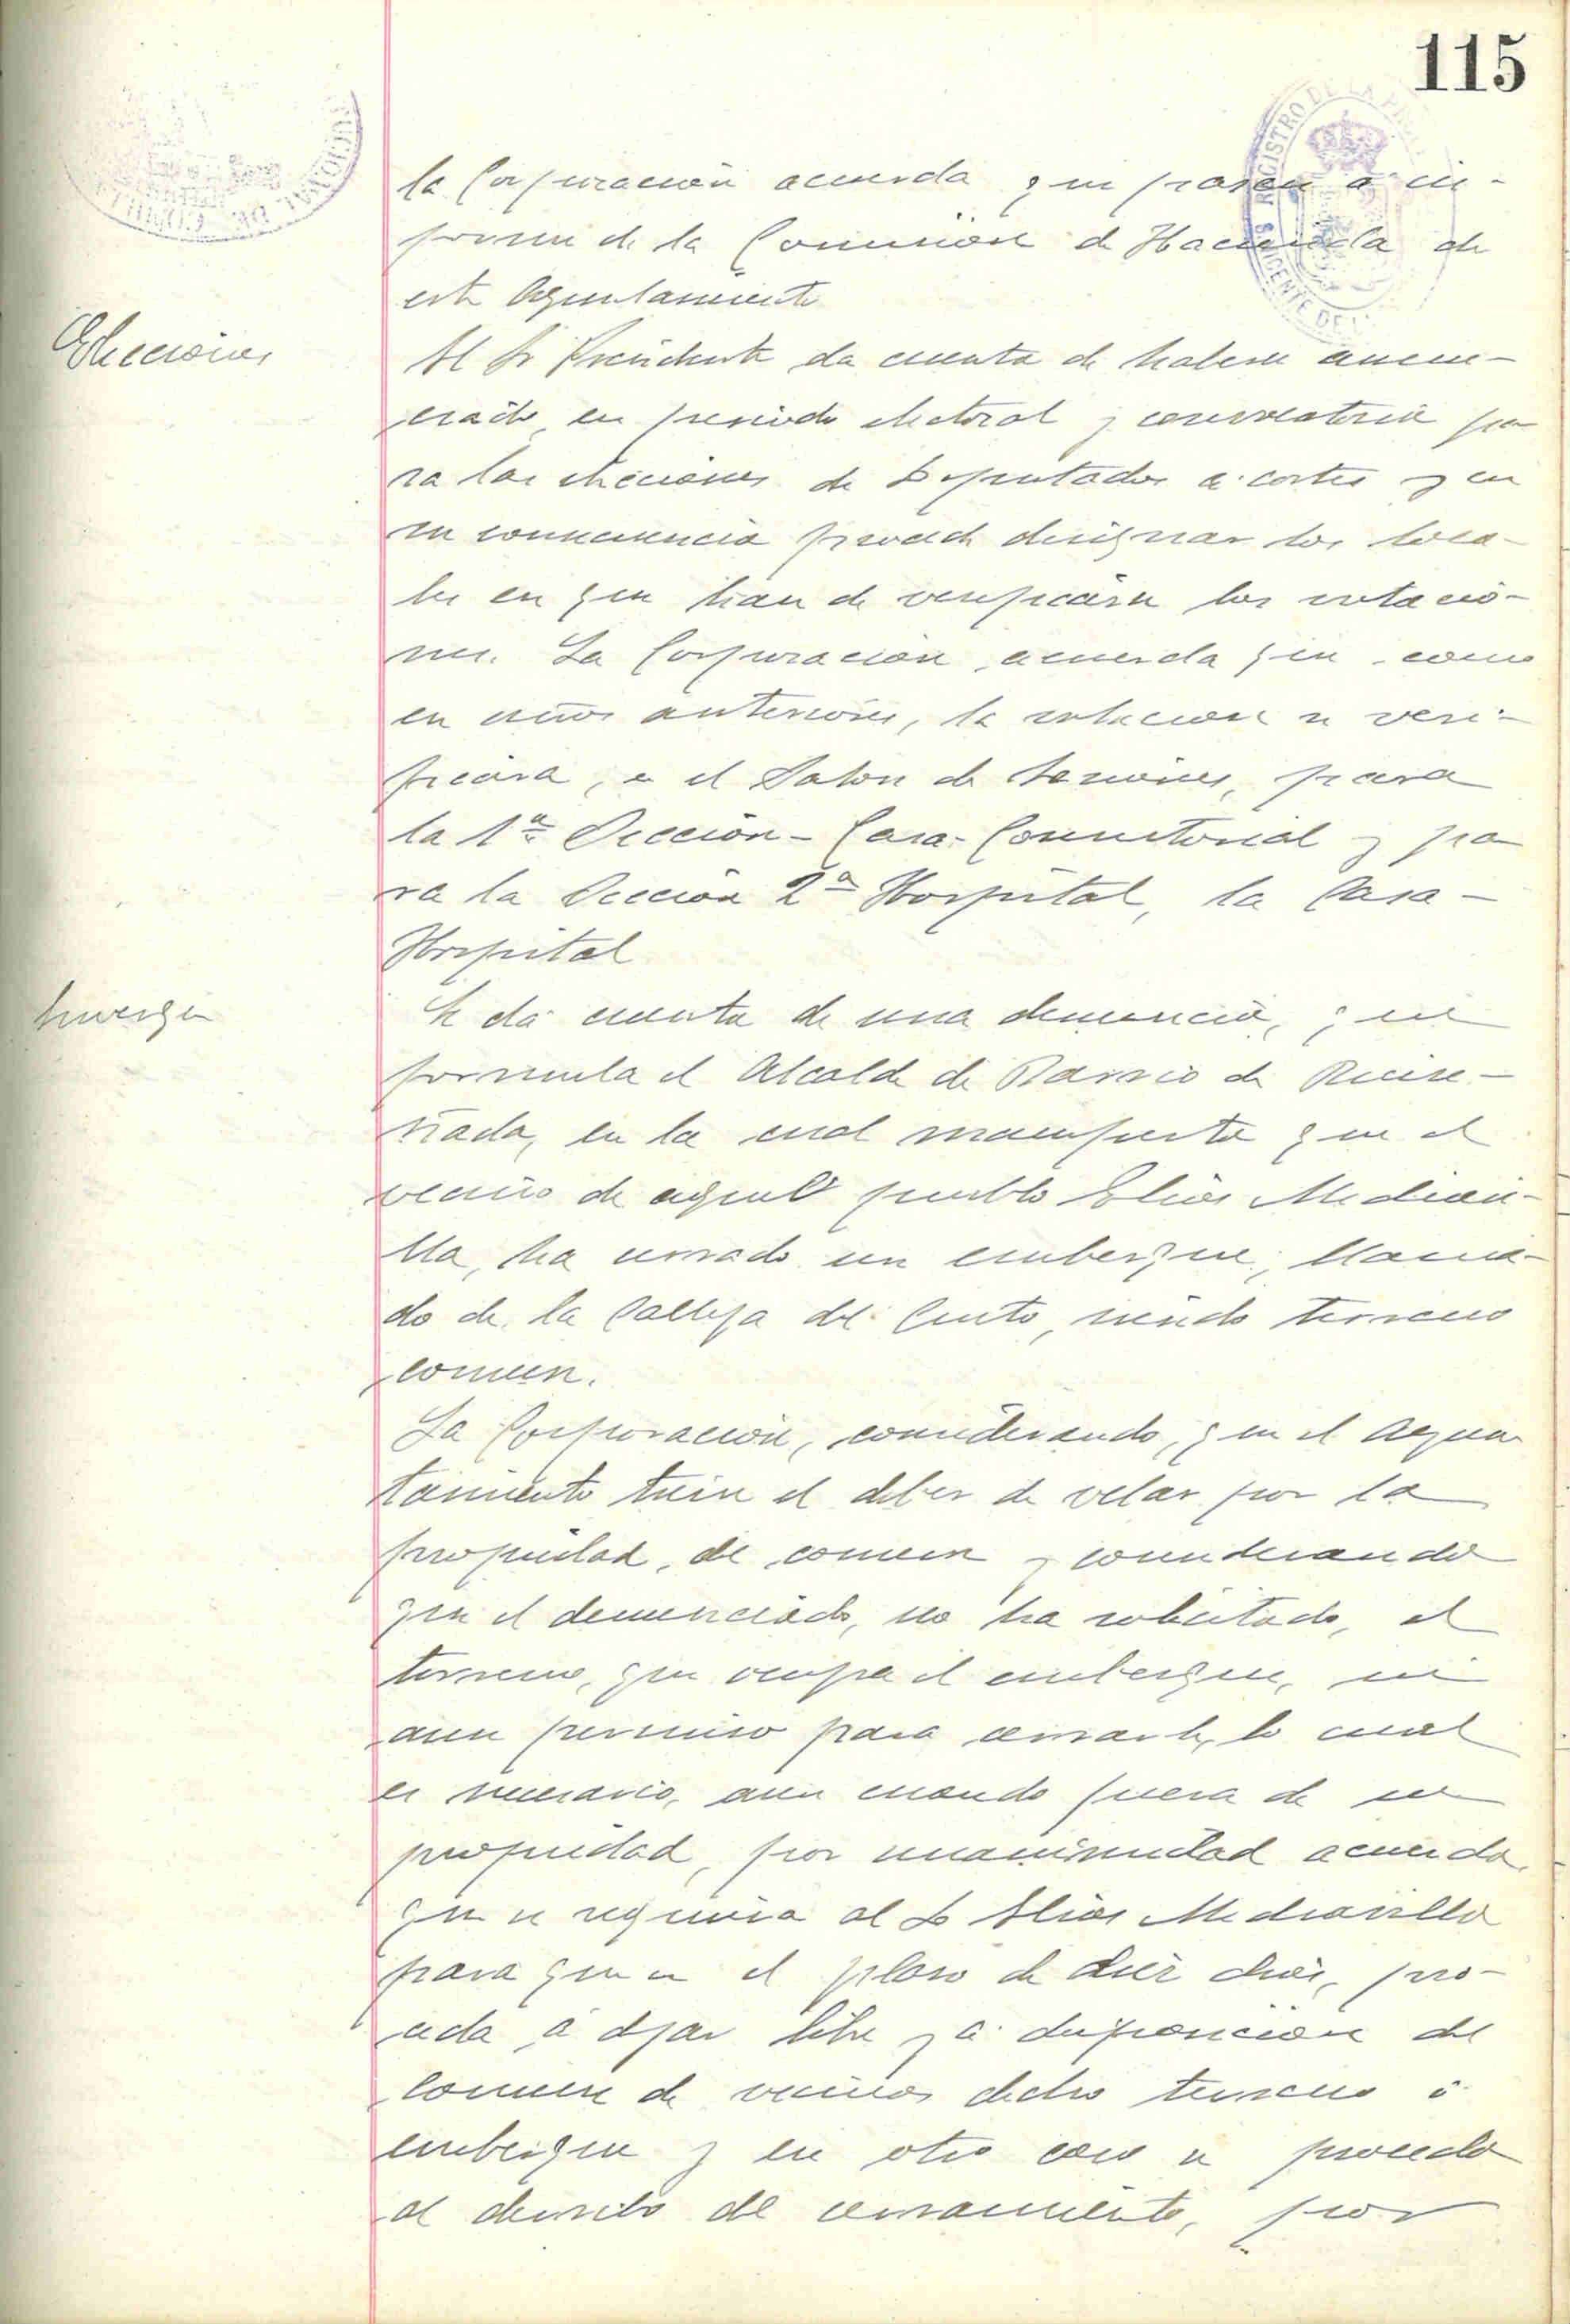 115
la Corporación acuerda que pasen a in-
forme de la Comisión de Hacienda de
este Ayuntamiento
Elecciones
El Sr Presidente da cuenta de haberse anun-
ciado en periodo electoral y convocatoria pa
ra las elecciones de Diputados a cortes y en
su consecuencia procede designar los loca-
les en que han de verificarse las votacio-
nes. La Corporación acuerda que como
en años anteriores, la votacion se veri-
ficara, en el Salon de Sesiones, para
la 1ª Sección - Casa-Consistorial y pa
ra la Sección 2ª Hospital, la Casa-
Hospital
Se dá cuenta de una denuncia, que
formula el Alcalde de Barrio de Ruise-
ñada, en la cual manifiesta que el
vecino de aquel pueblo Elias Median-
lla, ha cerrado un embergue, llama-
do de la Calleja del Cueto, siendo terreno
comun.
La Corporación, considerando, que el Ayun
tamiento tiene el deber de velar por la
propiedad, del comun y considerando
que el denunciado, no ha solicitado, el
terreno, que ocupa el embergue, ni
aun permiso para cerrarle, lo cual
es necesario, aun cuando fuera de su
propiedad, por unanimidad acuerda
que se requiera al D Elias Medianilla
para que en el plazo de diez dias, pro-
ceda á dejar libre y á disposicion del
comun de vecinos dicho terreno ó
embergue y en otro caso se proceda
al derribo del cerramiento, por